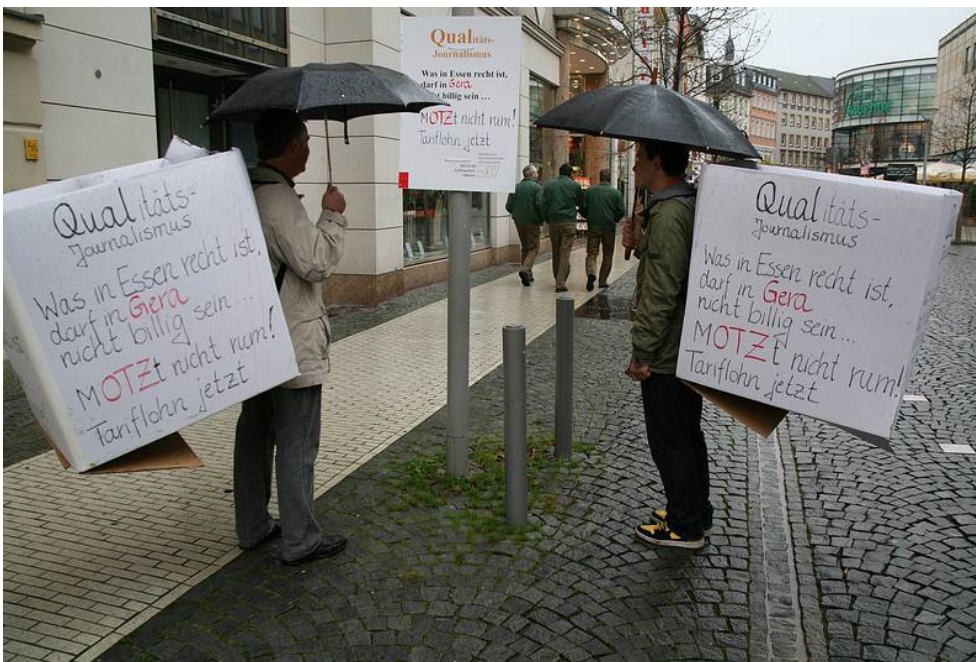 Qualitäts-
Journalismus
Was in Essen recht ist,
darf in Gera
nicht billig sein...
MOTZt nicht rum!
Tariflohn jetzt
Qualitäts-
Journalismus
Was in Essen recht ist,
darf in Gera
nicht billig sein ...
MOTZt nicht rum!
Tariflohn jetzt
Qualitäts-
Journalismus
Was in Essen recht ist,
darf in Gera
nicht billig sein...
MOTZt nicht rum!
Tariflohn jetzt